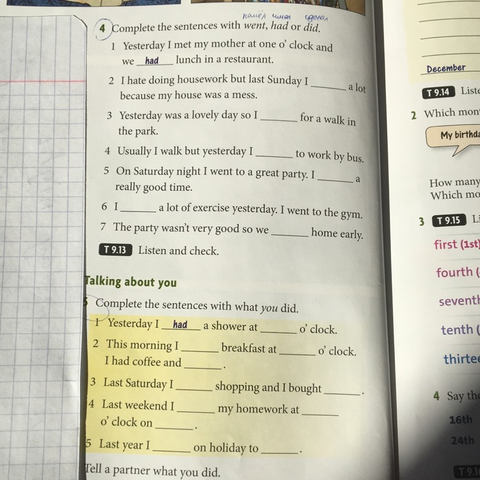 4 Complete the sentences with went, had or did.
1 Yesterday I met my mother at one o' clock and
we had lunch in a restaurant.
2 I hate doing housework but last Sunday I ______ a lot
because my house was a mess.
3 Yesterday was a lovely day so I ______ for a walk in
the park.
4 Usually I walk but yesterday I ______ to work by bus.
5 On Saturday night I went to a great party. I ______ a
really good time.
6 I ______ a lot of exercise yesterday. I went to the gym.
7 The party wasn't very good so we ______ home early.
T 9.13 Listen and check.
Talking about you
5 Complete the sentences with what you did.
1 Yesterday I had a shower at ______ o' clock.
2 This morning I ______ breakfast at ______ o' clock.
I had coffee and ______.
3 Last Saturday I ______ shopping and I bought ______.
4 Last weekend I ______ my homework at ______
o' clock on ______.
5 Last year I ______ on holiday to ______.
Tell a partner what you did.
December
T 9.14 Liste
2 Which mon
My birthda
How many
Which mo
3 T 9.15 Li
first (1st)
fourth (
sevent
tenth (
thirtee
4 Say the
16th
24th